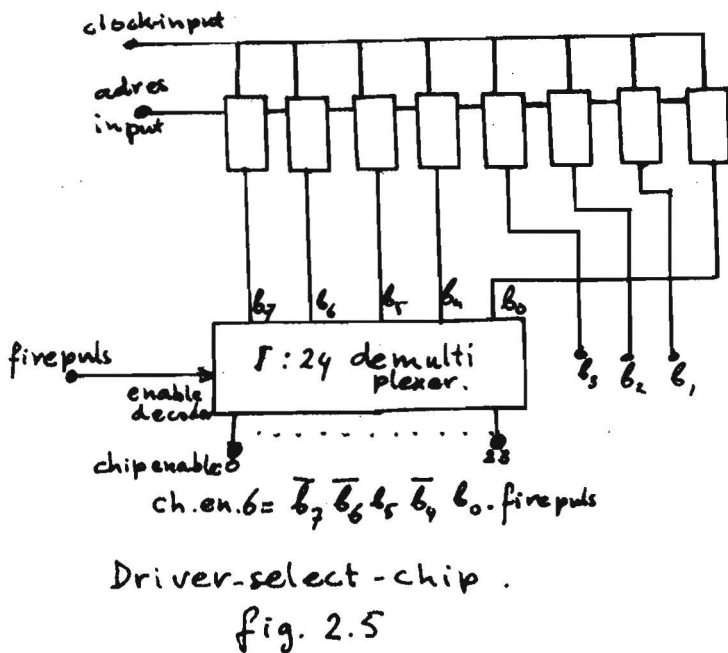 clock-input
adres
input
b₇ b₆ b₅ b₄ b₀
b₃ b₂ b₁
firepuls
enable
decoder
5:24 demulti
plexer.
chip enable 0 . . . . . . . . . 23
ch.en.6 = b̅₇ b̅₆ b₅ b̅₄ b₀. firepuls
Driver-select-chip.
fig. 2.5